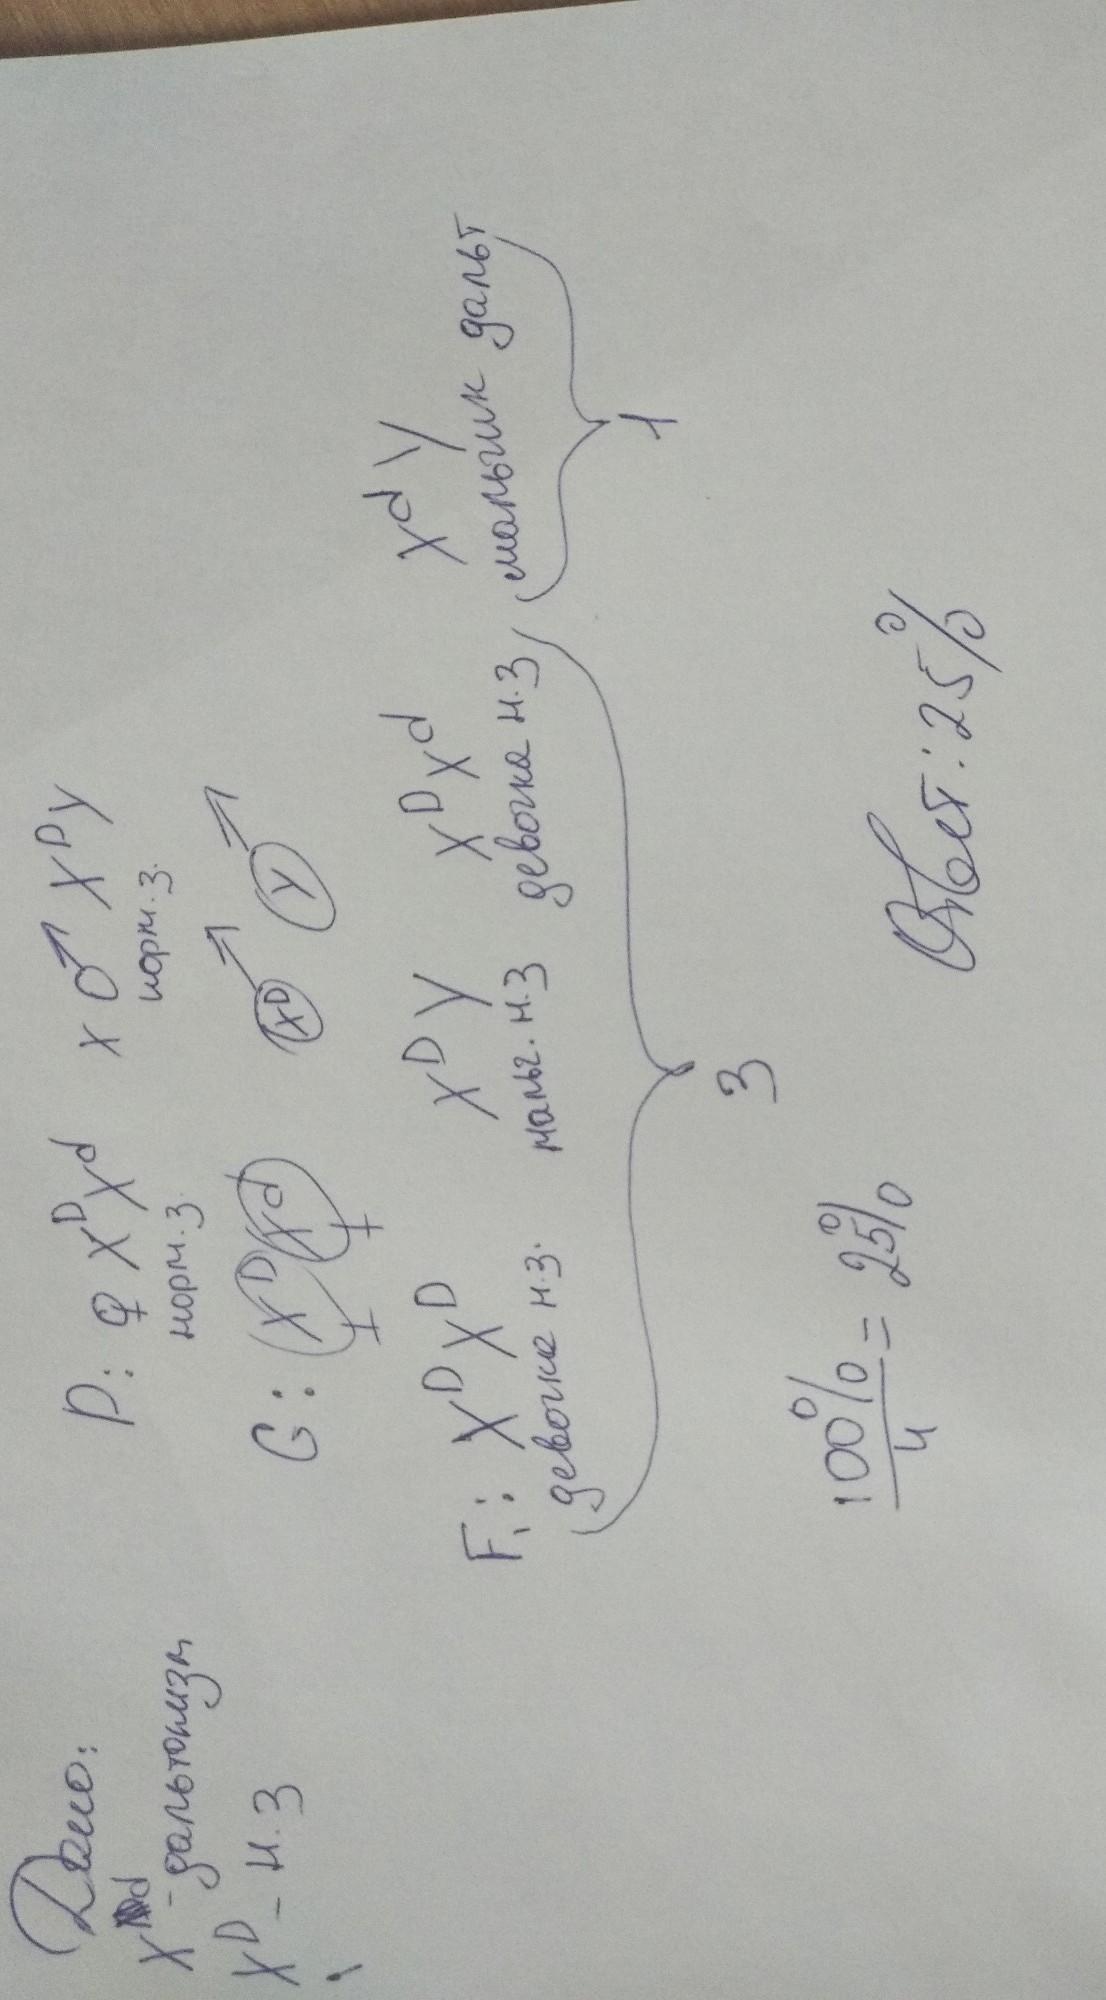 Дано:
X^d - дальтонизм
X^D - н.З
P: ♀ X^D X^d x ♂ X^D Y
норм.З. норм.З.
G: X^D X^d X^D Y
F₁: X^D X^D X^D Y X^D X^d X^d Y
девочка н.З. мальч. н.З девочка н.З мальчик дальт
3 1
100%/4 = 25%
Ответ: 25%